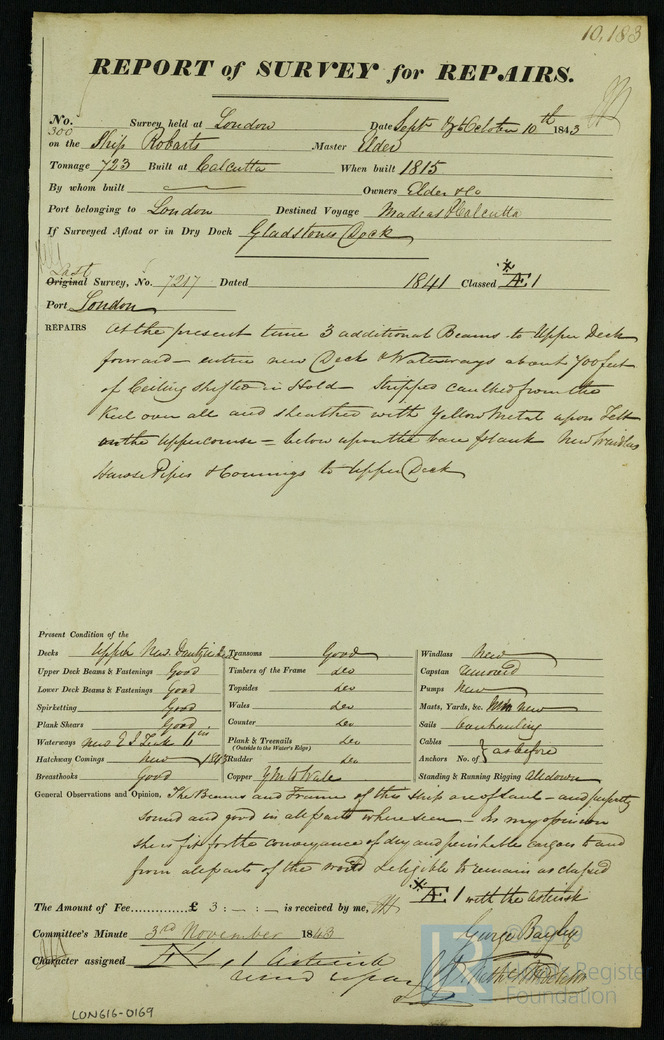 10,183
REPORT of SURVEY for REPAIRS.
No. 300 Survey held at London Date Sept & October 10th 1843
on the Ship Robarts Master Elder
Tonnage 723 Built at Calcutta When built 1815
By whom built Owners Elder & Co
Port belonging to London Destined Voyage Madras & Calcutta
If Surveyed Afloat or in Dry Dock Gladstones Dock
Last
Original Survey, No. 7217 Dated 1841 Classed * Æ 1
Port London
REPAIRS At the present time 3 additional Beams to Upper Deck
forward – entire new Deck & Waterways about 700 feet
of Ceiling shifted in Hold – Stripped caulked from the
Keel over all and sheathed with Yellow Metal upon Felt
on the upper course = below upon the bare plank New Windlass
Hawse Pipes & Comings to Upper Deck
Present Condition of the
Decks Upper New
Upper Deck Beams & Fastenings Good
Lower Deck Beams & Fastenings Good
Spirketting Good
Plank Shears Good
Waterways new E I Teak 6 ins
Hatchway Comings New 1843
Breasthooks Good
Transoms Good
Timbers of the Frame do
Topsides do
Wales do
Counter do
Plank & Treenails do
(Outside to the Water's Edge)
Rudder do
Copper Y M to Wale
Windlass New
Capstan removed
Pumps New
Masts, Yards, &c. new
Sails overhauling
Cables } as before
Anchors No. of
Standing & Running Rigging all down
General Observations and Opinion, The Beams and Frame of this Ship are of Saul – and perfectly
sound and good in all parts where seen – In my opinion
she is fit for the conveyance of dry and perishable cargoes to and
from all parts of the World & eligible to remain as classed
* Æ 1 with the asterisk
The Amount of Fee £ 3 : – : – is received by me,
Committee's Minute 3rd November 1843
George Bayley
Character assigned Æ 1 Asterisk
LR
© 2020
Lloyd's Register
Foundation
LON616-0169